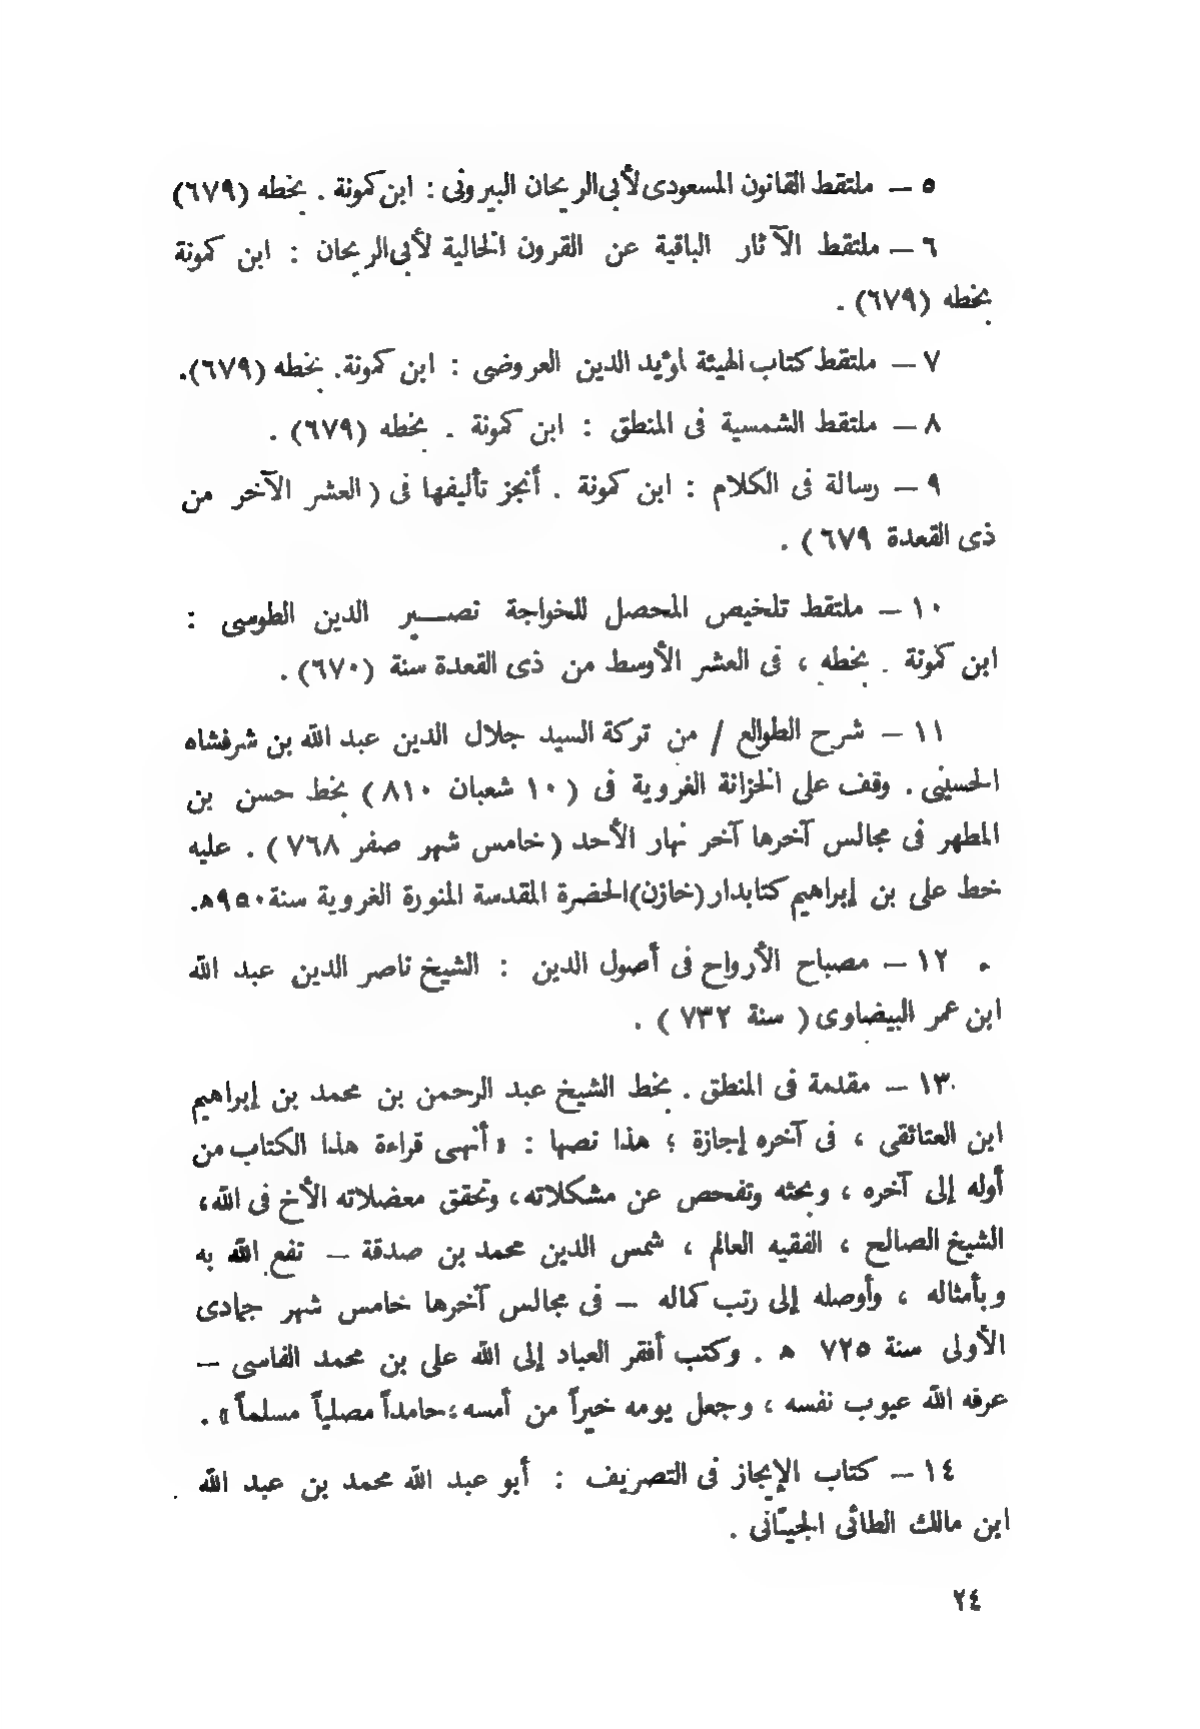 ٥ — ملتقط القانون المسعودى لأبى الريحان البيرونى : ابن كمونة . بخطه (٦٧٩)
٦ — ملتقط الآثار الباقية عن القرون الخالية لأبى الريحان : ابن كمونة
بخطه (٦٧٩) .
٧ — ملتقط كتاب الهيئة لمؤيد الدين العروضى : ابن كمونة. بخطه (٦٧٩).
٨ — ملتقط الشمسية فى المنطق : ابن كمونة . بخطه (٦٧٩) .
٩ — رسالة فى الكلام : ابن كمونة . أنجز تأليفها فى ( العشر الآخر من
ذى القعدة ٦٧٩ ) .
١٠ — ملتقط تلخيص المحصل للخواجة نصير الدين الطوسى :
ابن كمونة . بخطه ، فى العشر الأوسط من ذى القعدة سنة (٦٧٠) .
١١ — شرح الطوالع / من تركة السيد جلال الدين عبد الله بن شرفشاه
الحسينى . وقف على الخزانة الغروية فى ( ١٠ شعبان ٨١٠ ) بخط حسن بن
المطهر فى مجالس آخرها آخر نهار الأحد ( خامس شهر صفر ٧٦٨ ) . عليه
خط على بن إبراهيم كتابدار (خازن) الحضرة المقدسة المنورة الغروية سنة ٩٥٠هـ.
١٢ — مصباح الأرواح فى أصول الدين : الشيخ ناصر الدين عبد الله
ابن عمر البيضاوى ( سنة ٧٣٢ ) .
١٣ — مقدمة فى المنطق . بخط الشيخ عبد الرحمن بن محمد بن إبراهيم
ابن العتائقى ، فى آخره إجازة ؛ هذا نصها : « أنهى قراءة هذا الكتاب من
أوله إلى آخره ، وبحثه وتفحص عن مشكلاته ، وتحقق معضلاته الأخ فى الله،
الشيخ الصالح ، الفقيه العالم ، شمس الدين محمد بن صدقة — نفع الله به
وبأمثاله ، وأوصله إلى رتب كماله — فى مجالس آخرها خامس شهر جمادى
الأولى سنة ٧٢٥ هـ . وكتب أفقر العباد إلى الله على بن محمد الفاسى —
عرفه الله عيوب نفسه ، وجعل يومه خيراً من أمسه ؛ حامداً مصلياً مسلماً » .
١٤ — كتاب الإيجاز فى التصريف : أبو عبد الله محمد بن عبد الله
ابن مالك الطائى الجيانى .
٢٤